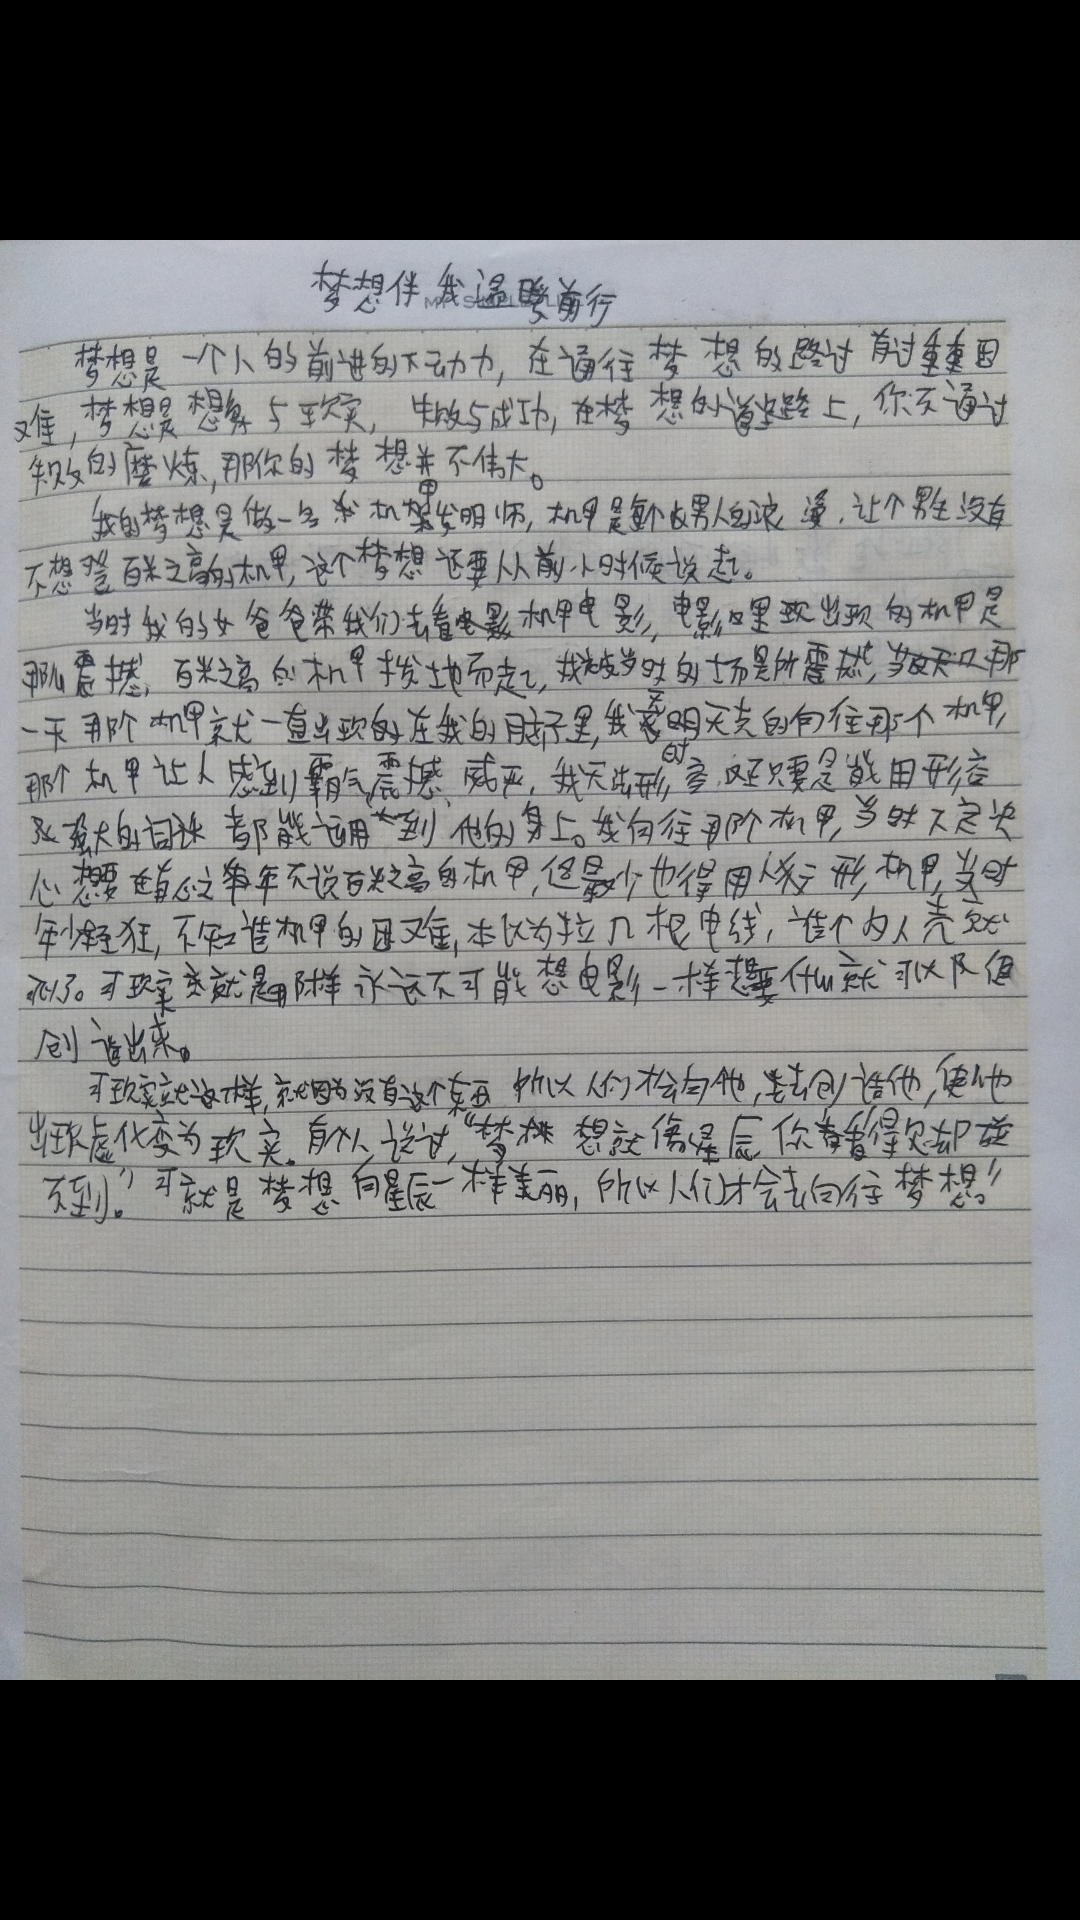 梦想伴我温暖前行
梦想是一个人的前进的不动力,在通往梦想的路过有过重重困
难,梦想是想象与现实,失败与成功,在梦想的道路上,你不通过
失败的磨炼,那你的梦想并不伟大。
我的梦想是做一名机甲发明师,机甲是每个男人的浪漫,让个男生没有
不想驾百米之高的机甲,这个梦想还要从前小时候说起。
当时我的爸爸带我们去看电影机甲电影,电影里现出现的机甲是
那么震撼,百米之高的机甲拔地而起,我被当时的场景所震撼,当天
一天那个机甲就一直出现的在我的脑子里,我的向往那个机甲,
那个机甲让人感到霸气震撼威严,我无法形容,只要是能用形容
强大的词语都能运用到他的身上。我向往那个机甲,当时下定决
心想要在有年不说百米之高的机甲,但最少也得用人形机甲,当时
年少轻狂,不知造机甲的困难,本以为拉几根电线,造个内人壳就
行了。可现实就是那样永远不可能想电影一样想要什么就可以
创造出来。
可现实就这样,就因为没有这个东西所以人们才会向他,去创造他,使他
出现虚化变为现实。有个人说过,“梦想就像星辰你看得见却碰
不到。”可就是梦想向星辰一样美丽,所以人们才会去向往梦想。”